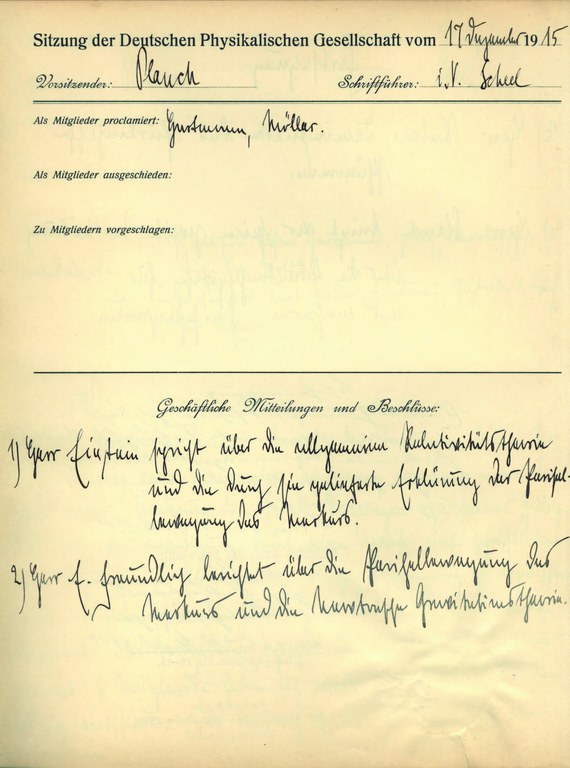 Sitzung der Deutschen Physikalischen Gesellschaft vom 17 Dezember 1915
Vorsitzender: Planck Schriftführer: i.V. Scheel
Als Mitglieder proclamiert: Möller.
Als Mitglieder ausgeschieden:
Zu Mitgliedern vorgeschlagen:
Geschäftliche Mitteilungen und Beschlüsse:
1) Herr Einstein spricht über die allgemeine Relativitätstheorie
und die durch sie gelieferte Erklärung der Perihel-
bewegung des Merkurs.
2) Herr E. Freundlich berichtet über die Perihelbewegung des
Merkurs und die Newtonsche Gravitationstheorie.